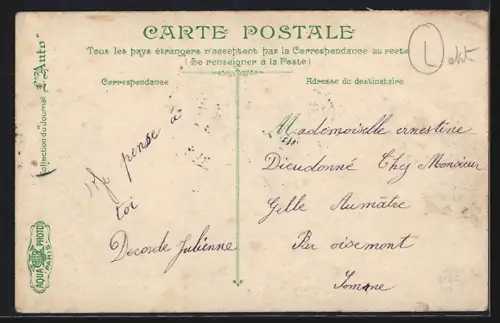 CARTE POSTALE
Tous les pays étrangers n'acceptent pas la Correspondance au recto
(Se renseigner à la Poste)
Correspondance
Adresse du destinataire
Collection du Journal "L'Auto"
AQUA PHOTO
PARIS
L
Je pense à
toi
Decorde Julienne
Mademoiselle ernestine
Dieudonné Chez Monsieur
Gelle Aumâtre
Par oisemont
Somme